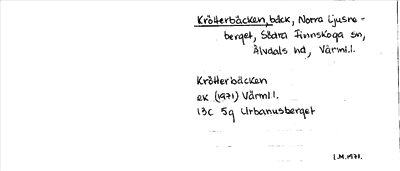 Krötterbäcken, bäck, Norra Ljusne-
berget, Södra Finnskoga sn,
Älvdals hd, Värml.l.
Krötterbäcken
ek (1971) Värml.l.
13c 5g Urbanusberget
I.M. 1971.